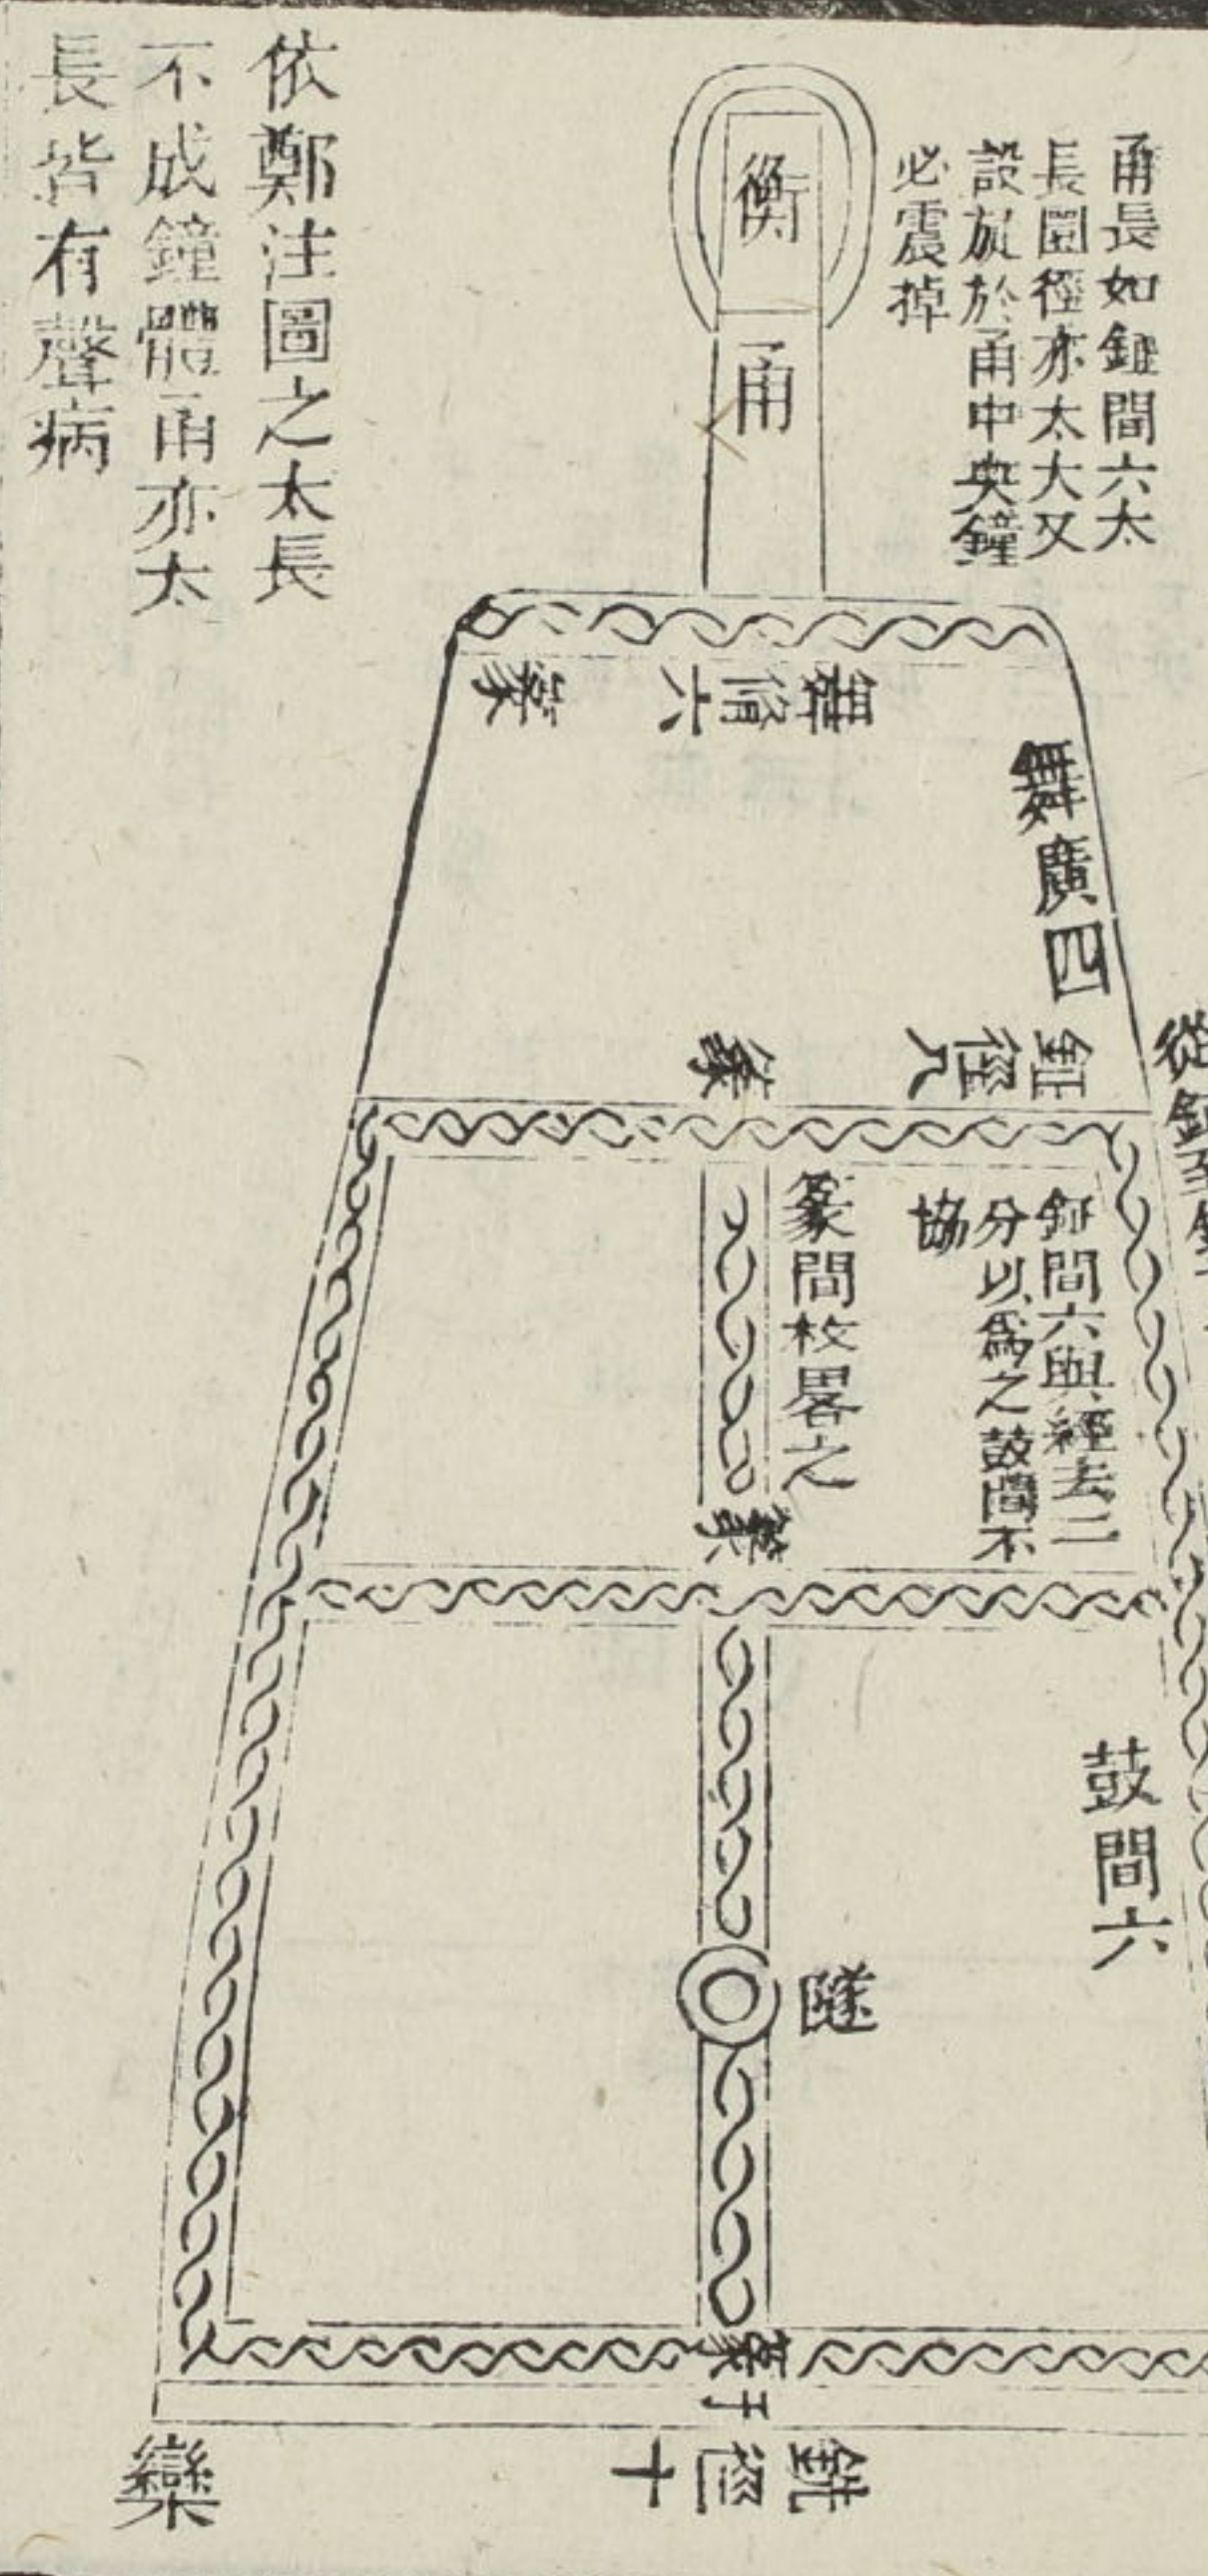 甬長如鉦間六太
長圍徑亦太大又
設旋於甬中央鐘
必震掉
衡
甬
依鄭注圖之太長
不成鐘體甬亦太
長皆有聲病
舞脩六
篆
舞廣四
鉦徑八
篆
從鉦至
鉦間六與經去二
分以爲之鼓間不
協
篆間枚畧之
篆
鼓間六
隧
篆
于
銑徑十
欒